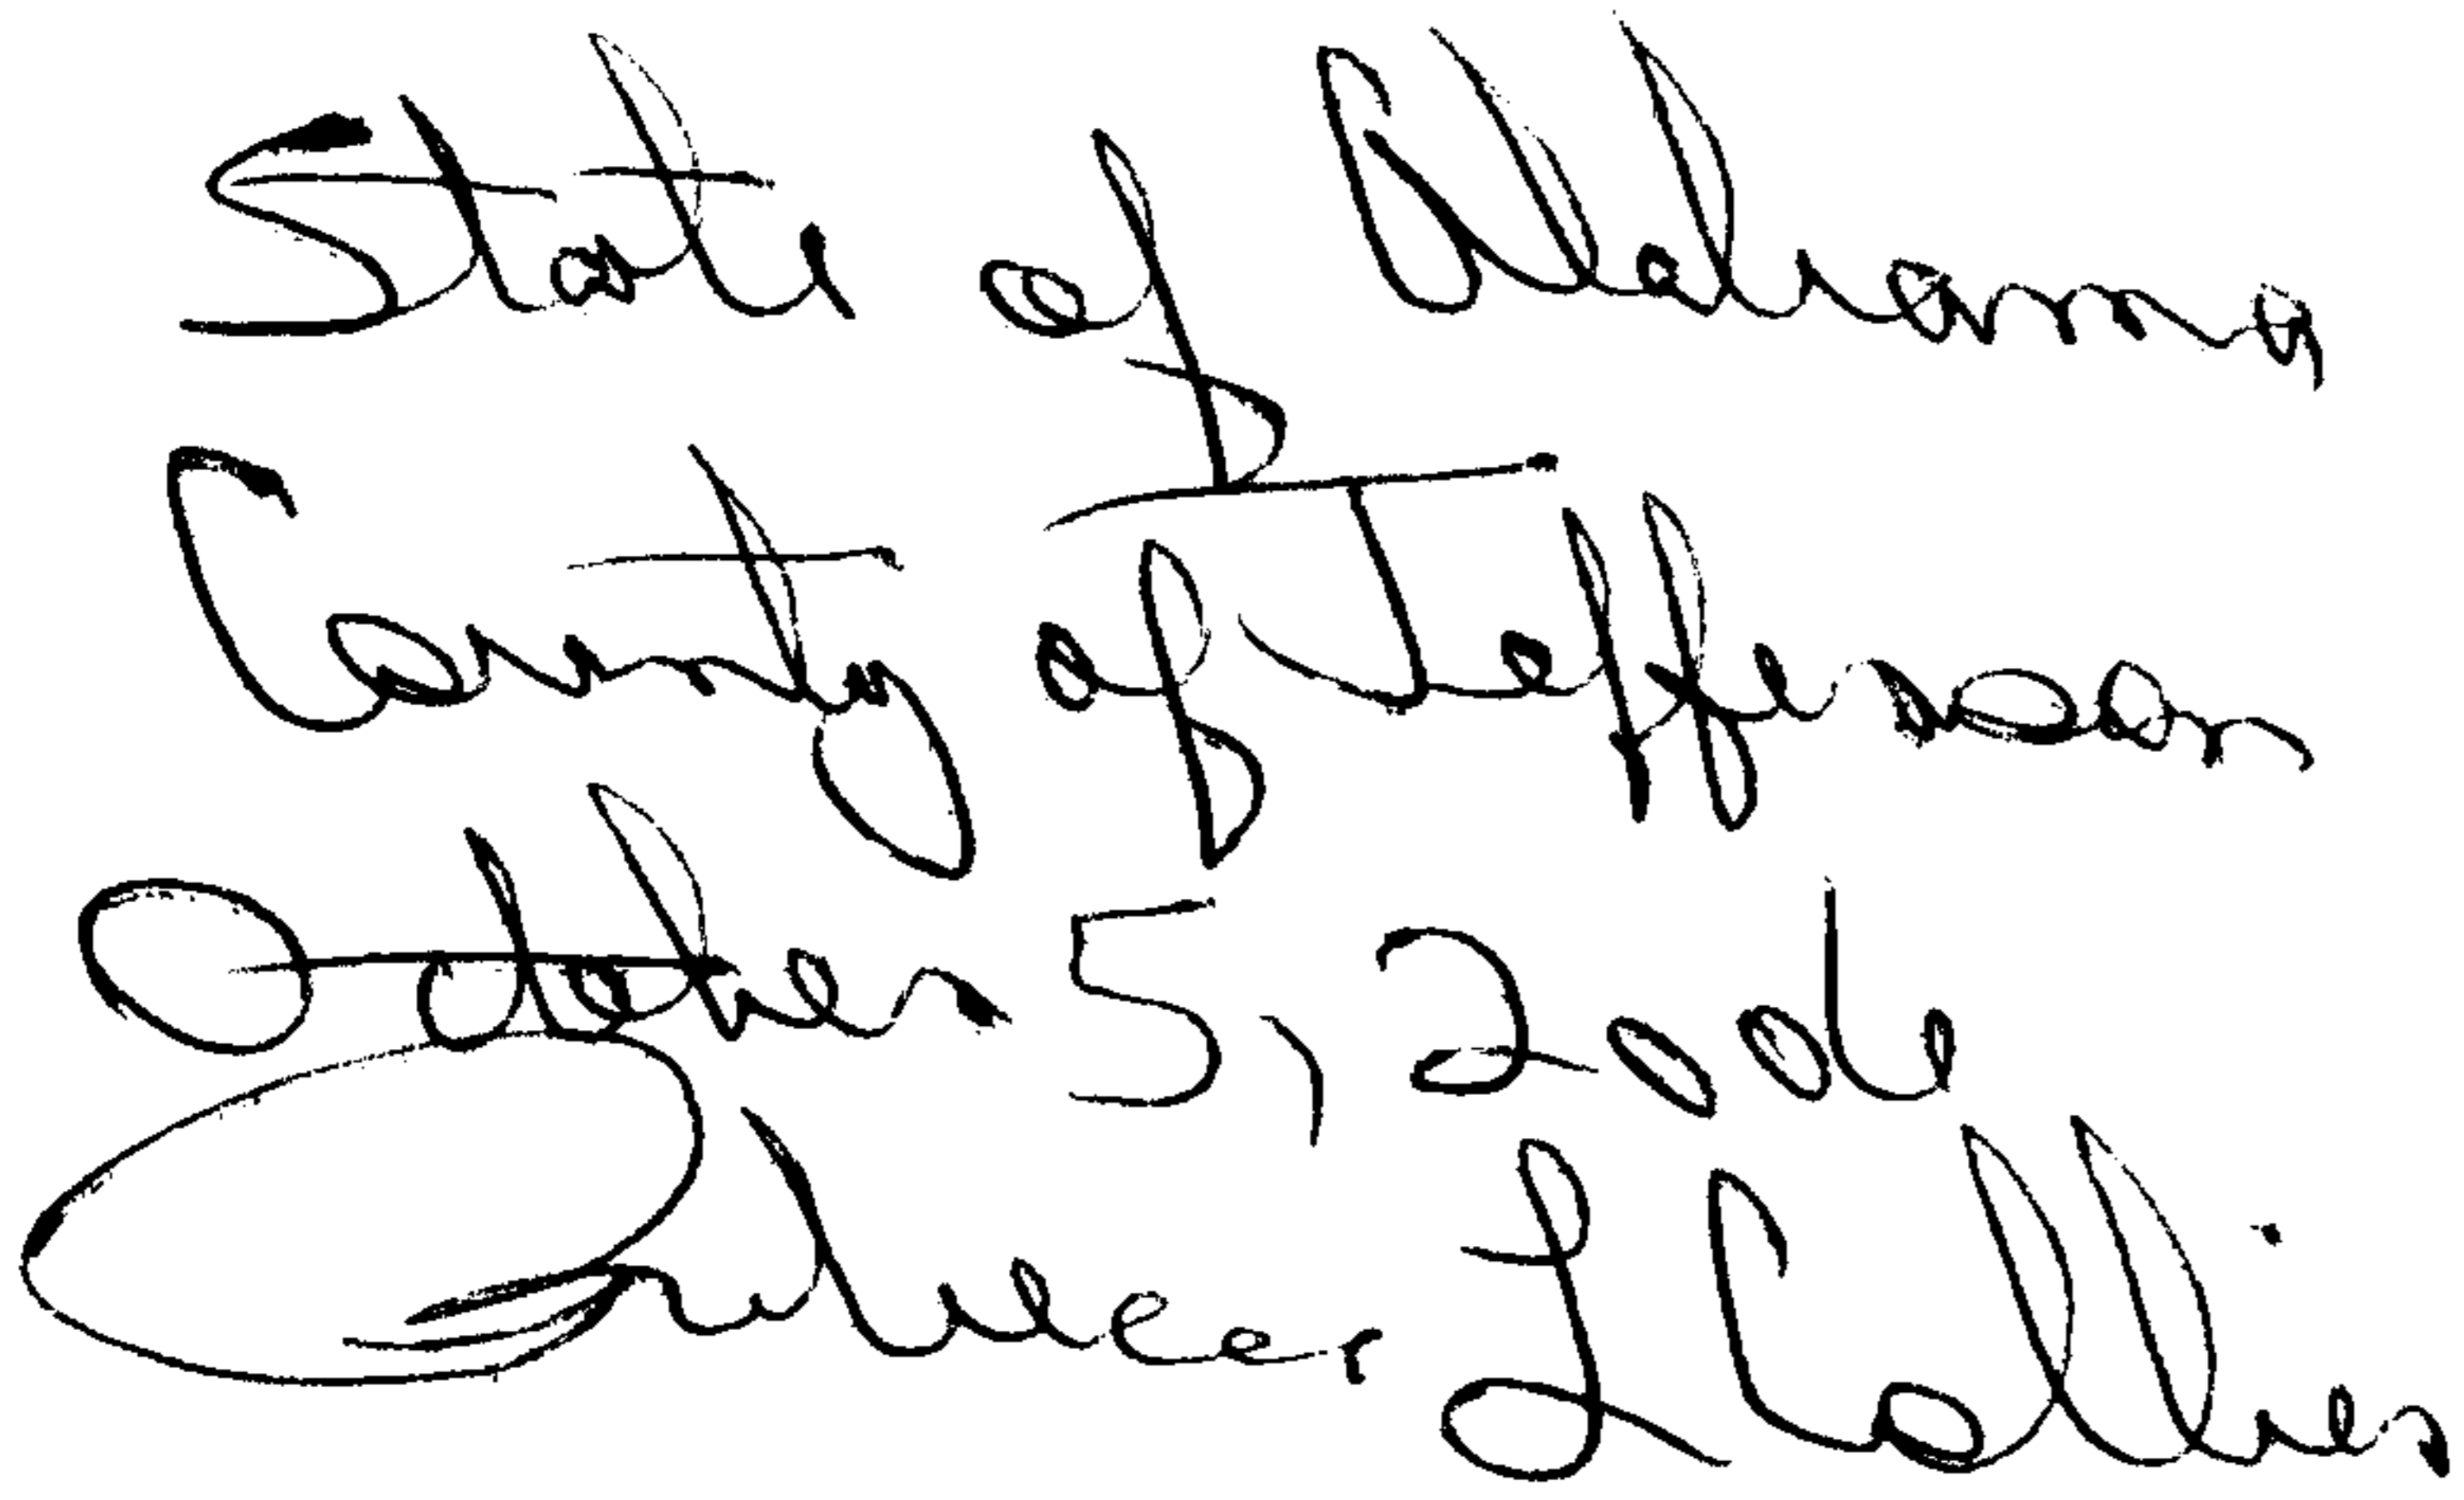 State of Alabama
County of Jefferson
October 5, 2006
L Collier